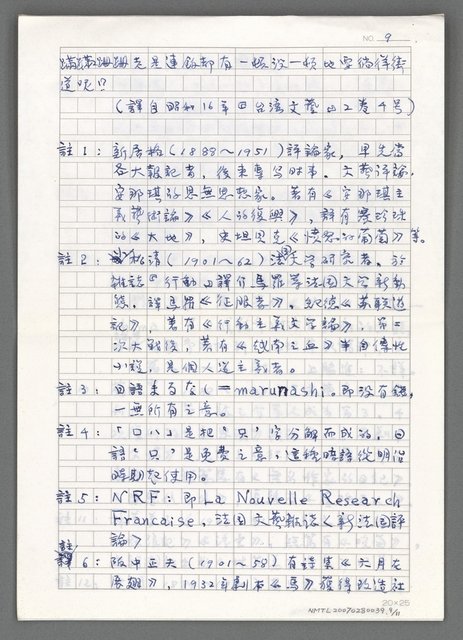 NO. 9
蹣蹣跚跚走連飯都有一頓沒一頓地窮徜徉街
道呢⁉
（譯自昭和16年『台灣文藝』2卷4号）
註1：新居格（1888～1951）評論家，早先當
各大報記者，後專寫時事、文藝評論，
安那琪 思無思想家。著有《安那琪主
義藝術論》《人的復興》，譯有賽珍珠
的《大地》，史坦貝克《憤怒的葡萄》等。
註2：小松清（1901～62）法国文学研究者。於
雜誌『行動』譯介馬羅等法国文学新動
態，譯馬羅《征服者》、紀德《苏联遊
記》，著有《行動主義文学論》，第二
次大戰後，著有《越南之血》半自傳性
小說，是個人道主義者。
註3：日語まるなし＝marunashi。即沒有錢，
一無所有之意。
註4：「口八」是把“只”字分解而成的，日
語“只”是免費之意，這種暗語從明治
時期起使用。
註5：NRF：即La Nouvelle Research
Francaise，法国文藝雜誌《新法国評
論》
註6：阪中正夫（1901～58）有詩集《六月在
展翅》，1932年劇本《馬》獲得改造社
20×25
NMTL20070280039.9/11